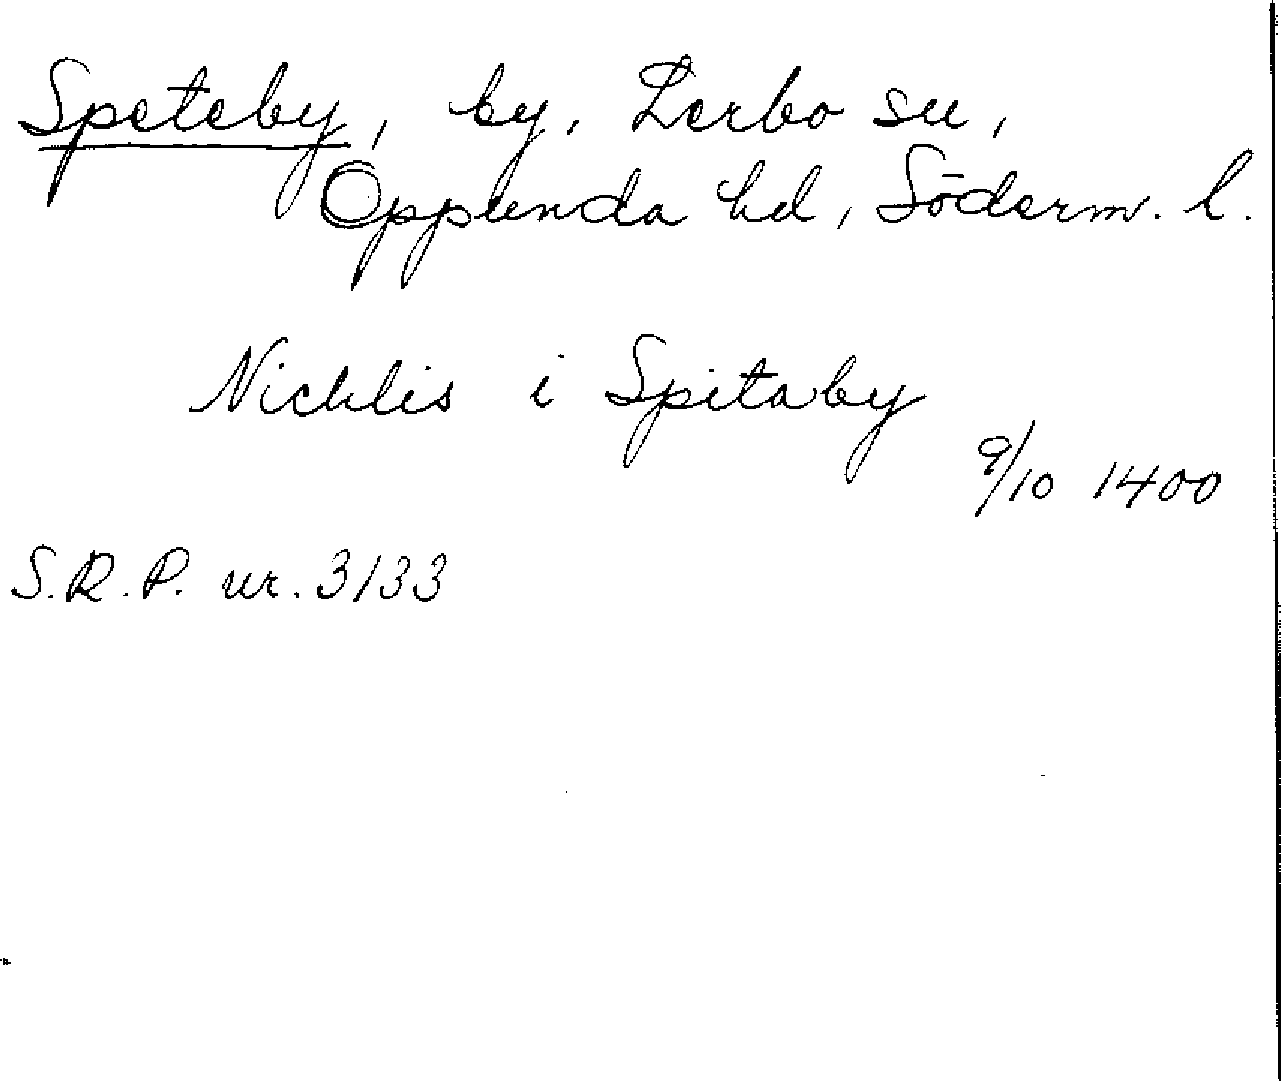 Speteby, by, Lerbo sn,
Oppunda hd, Söderm. l.
Nicklis i Spitaby
9/10 1400
S.R.P. nr. 3133